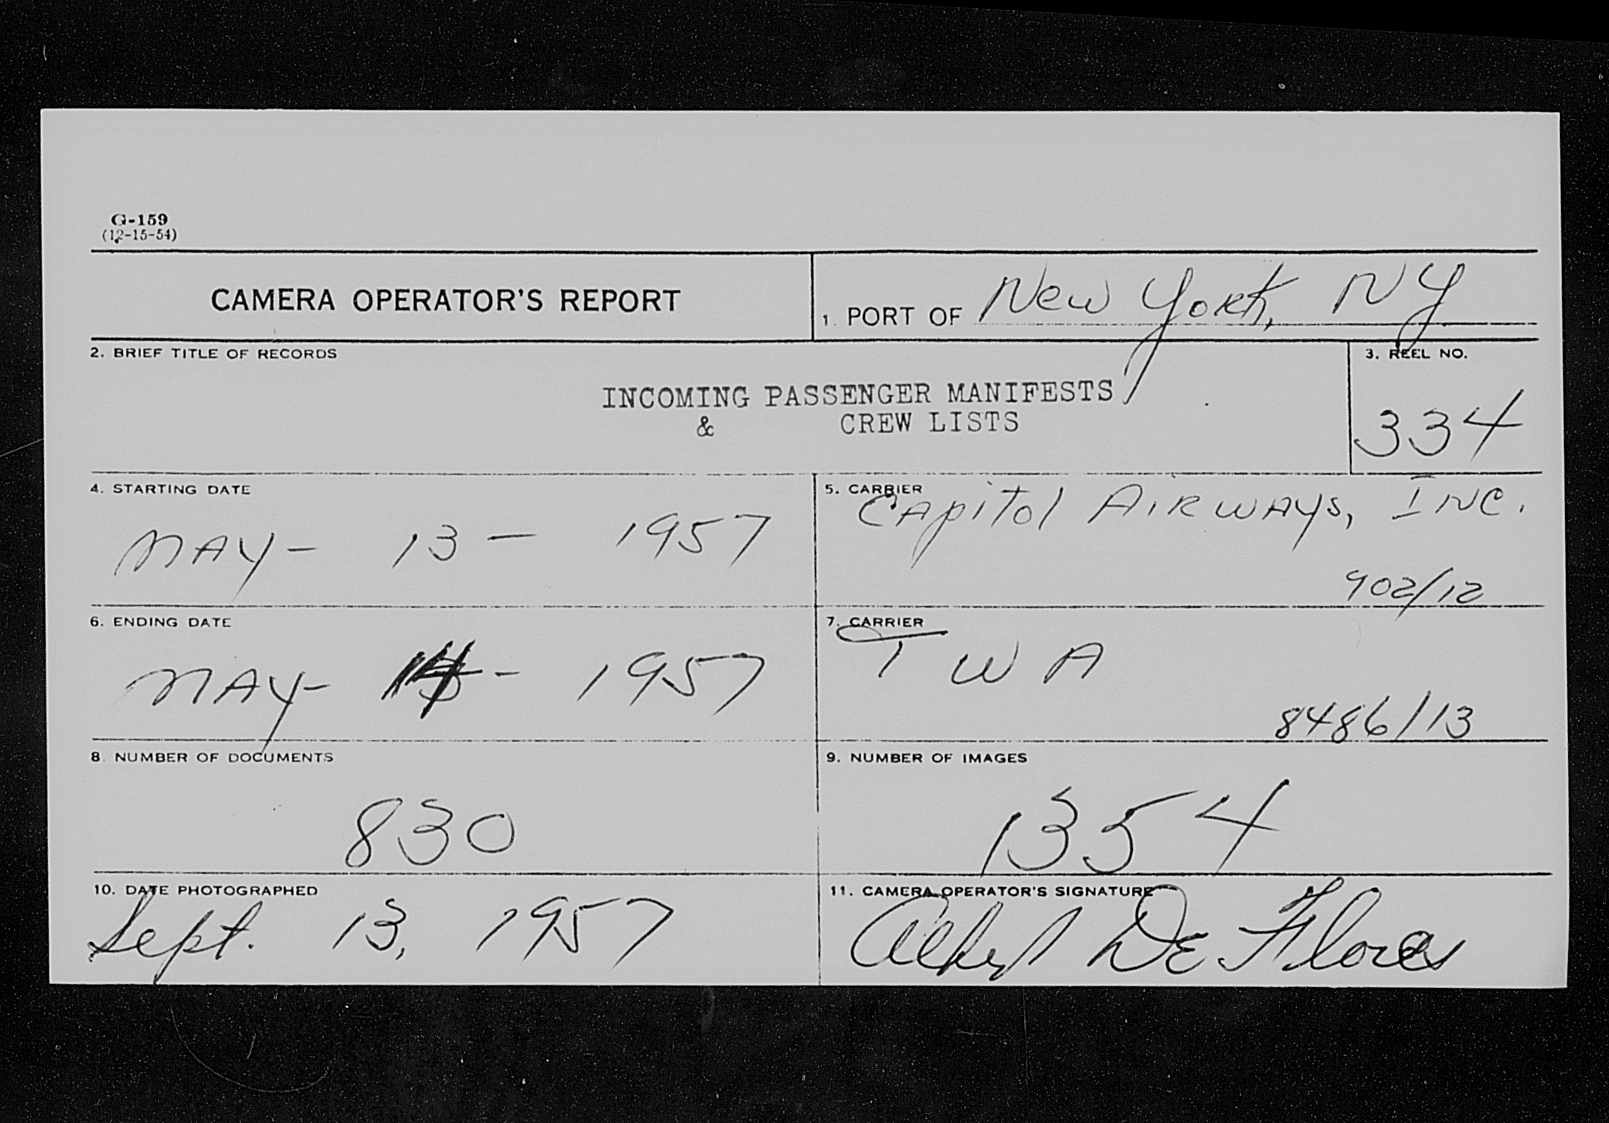 G-159
(12-15-54)
CAMERA OPERATOR'S REPORT
1. PORT OF New York, NY
2. BRIEF TITLE OF RECORDS
INCOMING PASSENGER MANIFESTS
& CREW LISTS
3. REEL NO.
334
4. STARTING DATE
MAY- 13 - 1957
5. CARRIER
CAPITOL AIRWAYS, INC.
902/12
6. ENDING DATE
MAY- 14 - 1957
7. CARRIER
TWA
8486/13
8. NUMBER OF DOCUMENTS
830
9. NUMBER OF IMAGES
1354
10. DATE PHOTOGRAPHED
Sept. 13, 1957
11. CAMERA OPERATOR'S SIGNATURE
Albert De Flores